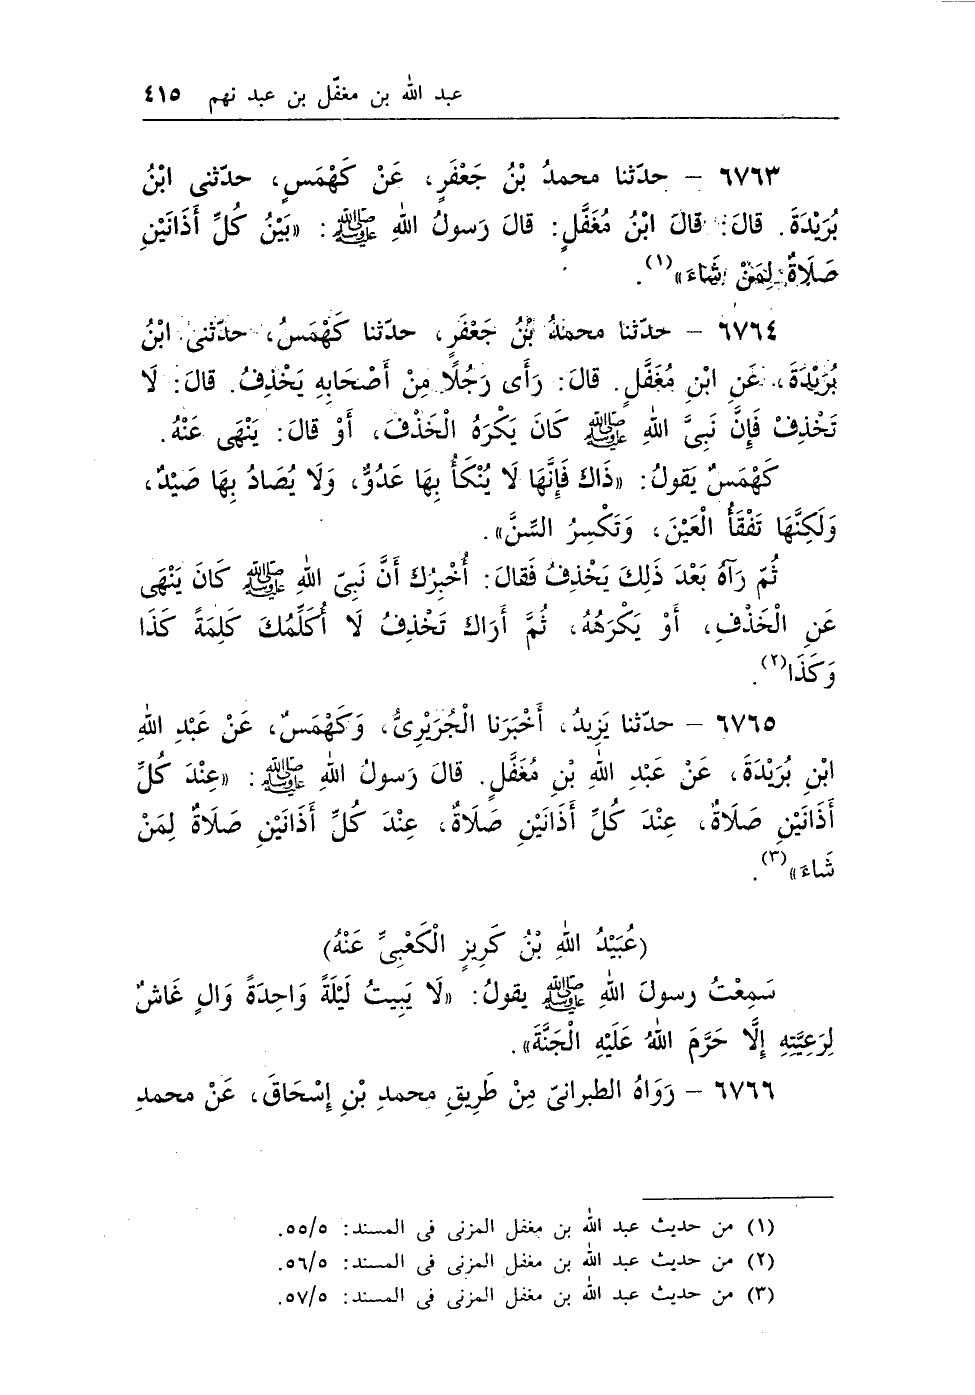 عبد الله بن مغفّل بن عبد نهم ٤١٥
٦٧٦٣ – حدّثنا محمدُ بْنُ جَعْفَرٍ، عَنْ كَهْمَسٍ، حدّثنى ابْنُ
بُرَيْدَةَ. قَالَ: قَالَ ابْنُ مُغَفَّلٍ: قالَ رَسولُ اللهِ ﷺ: «بَيْنُ كُلِّ أَذَانَيْنِ
صَلَاةٌ لِمَنْ شَاءَ»(١).
٦٧٦٤ – حدّثنا محمدُ بْنُ جَعْفَرٍ، حدّثنا كَهْمَسُ، حدّثنى ابْنُ
بُرَيْدَةَ، عَنِ ابْنِ مُغَفَّلٍ. قالَ: رَأى رَجُلًا مِنْ أَصْحَابِهِ يَخْذِفُ. قالَ: لَا
تَخْذِفْ فَإِنَّ نَبِىَّ اللهِ ﷺ كَانَ يَكْرَهُ الْخَذْفَ، أَوْ قالَ: يَنْهَى عَنْهُ.
كَهْمَسٌ يَقولُ: «ذَاكَ فَإِنَّهَا لَا يُنْكَأُ بِهَا عَدُوٌّ، وَلَا يُصَادُ بِهَا صَيْدٌ،
وَلَكِنَّهَا تَفْقَأُ الْعَيْنَ، وَتَكْسِرُ السِّنَّ».
ثُمّ رَآهُ بَعْدَ ذَلِكَ يَخْذِفُ فَقالَ: أُخْبِرُكَ أَنَّ نَبِىّ اللهِ ﷺ كَانَ يَنْهَى
عَنِ الْخَذْفِ، أَوْ يَكْرَهُهُ، ثُمَّ أَرَاكَ تَخْذِفُ لَا أُكَلِّمُكَ كَلِمَةً كَذَا
وَكَذَا(٢).
٦٧٦٥ – حدّثنا يَزِيدُ، أَخْبَرَنا الْجُرَيْرِىُّ، وَكَهْمَسٌ، عَنْ عَبْدِ اللهِ
ابْنِ بُرَيْدَةَ، عَنْ عَبْدِ اللهِ بْنِ مُغَفَّلٍ. قالَ رَسولُ اللهِ ﷺ: «عِنْدَ كُلِّ
أَذَانَيْنِ صَلَاةٌ، عِنْدَ كُلِّ أَذَانَيْنِ صَلَاةٌ، عِنْدَ كُلِّ أَذَانَيْنِ صَلَاةٌ لِمَنْ
شَاءَ»(٣).
(عُبَيْدُ اللهِ بْنُ كَرِيزٍ الْكَعْبِىِّ عَنْهُ)
سَمِعْتُ رسولَ اللهِ ﷺ يقولُ: «لَا يَبِيتُ لَيْلَةً وَاحِدَةً وَالٍ غَاشٌ
لِرَعِيَّتِهِ إِلَّا حَرَّمَ اللهُ عَلَيْهِ الْجَنَّةَ».
٦٧٦٦ – رَوَاهُ الطبرانىّ مِنْ طَرِيقِ محمدِ بْنِ إِسْحَاقَ، عَنْ محمدِ
(١) من حديث عبد الله بن مغفل المزنى فى المسند: ٥٥/٥.
(٢) من حديث عبد الله بن مغفل المزنى فى المسند: ٥٦/٥.
(٣) من حديث عبد الله بن مغفل المزنى فى المسند: ٥٧/٥.